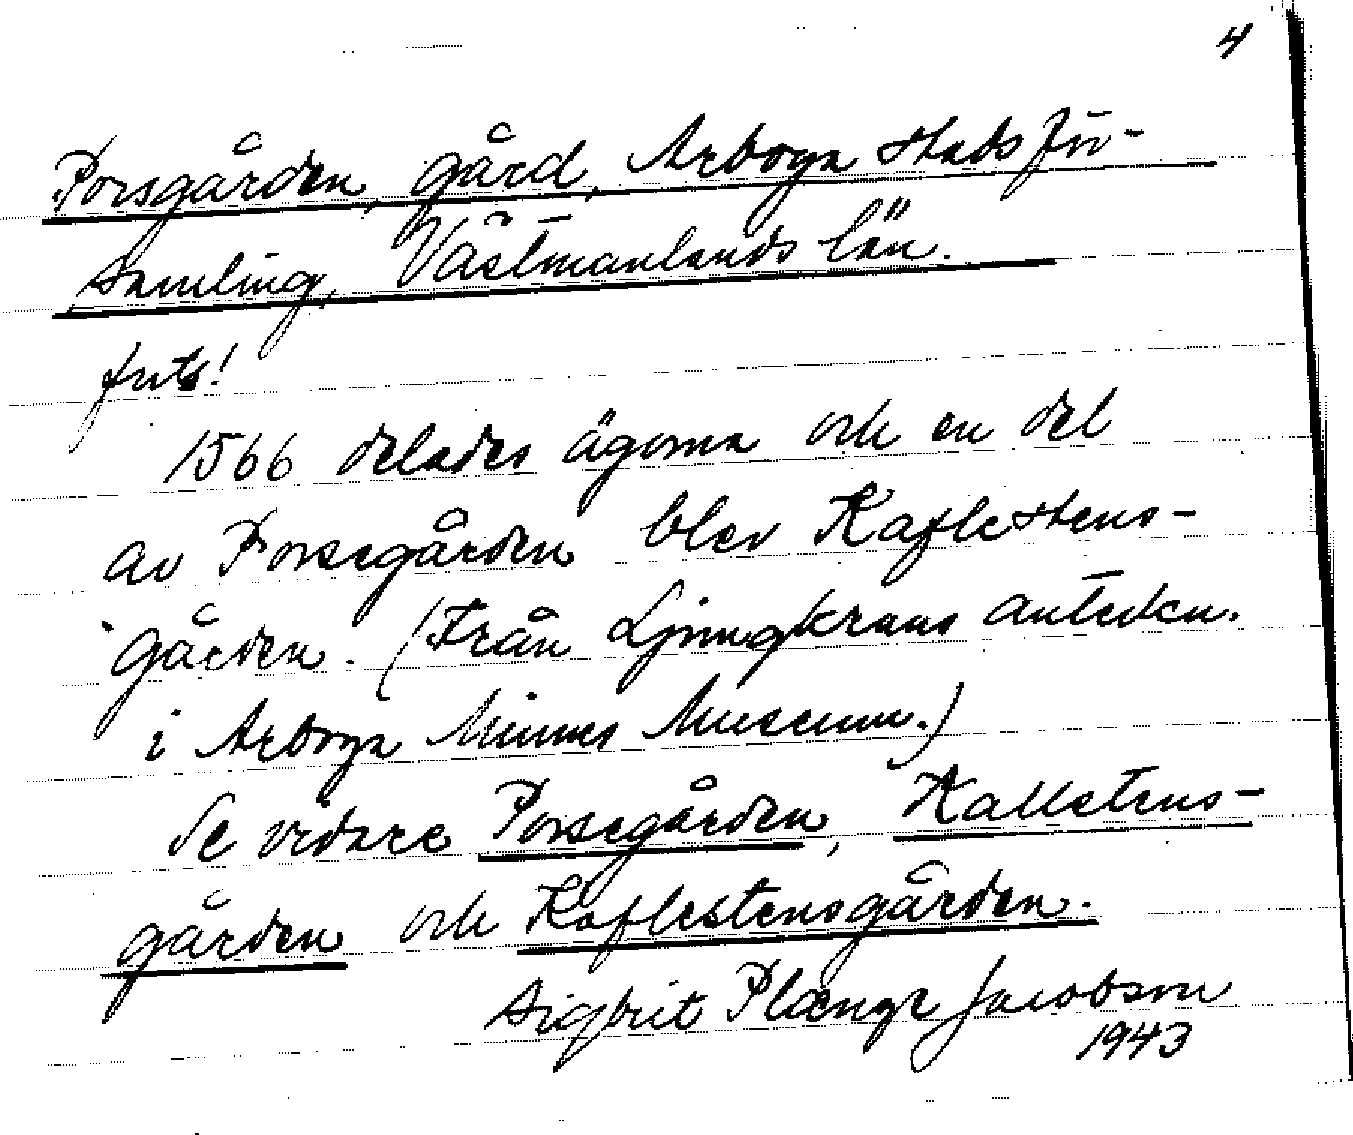 4
Porsgården, gård, Arboga stads för-
samling, Västmanlands län.
forts!
1566 delades ägorna och en del
av Porsegården blev Kaflestens-
gården. (Från Ljungkrans anteckn.
i Arboga Minnes Museum.)
Se vidare Porsegården, Kallstens-
gården och Kaflestensgården.
Sigbrit Plænge Jacobson
1943